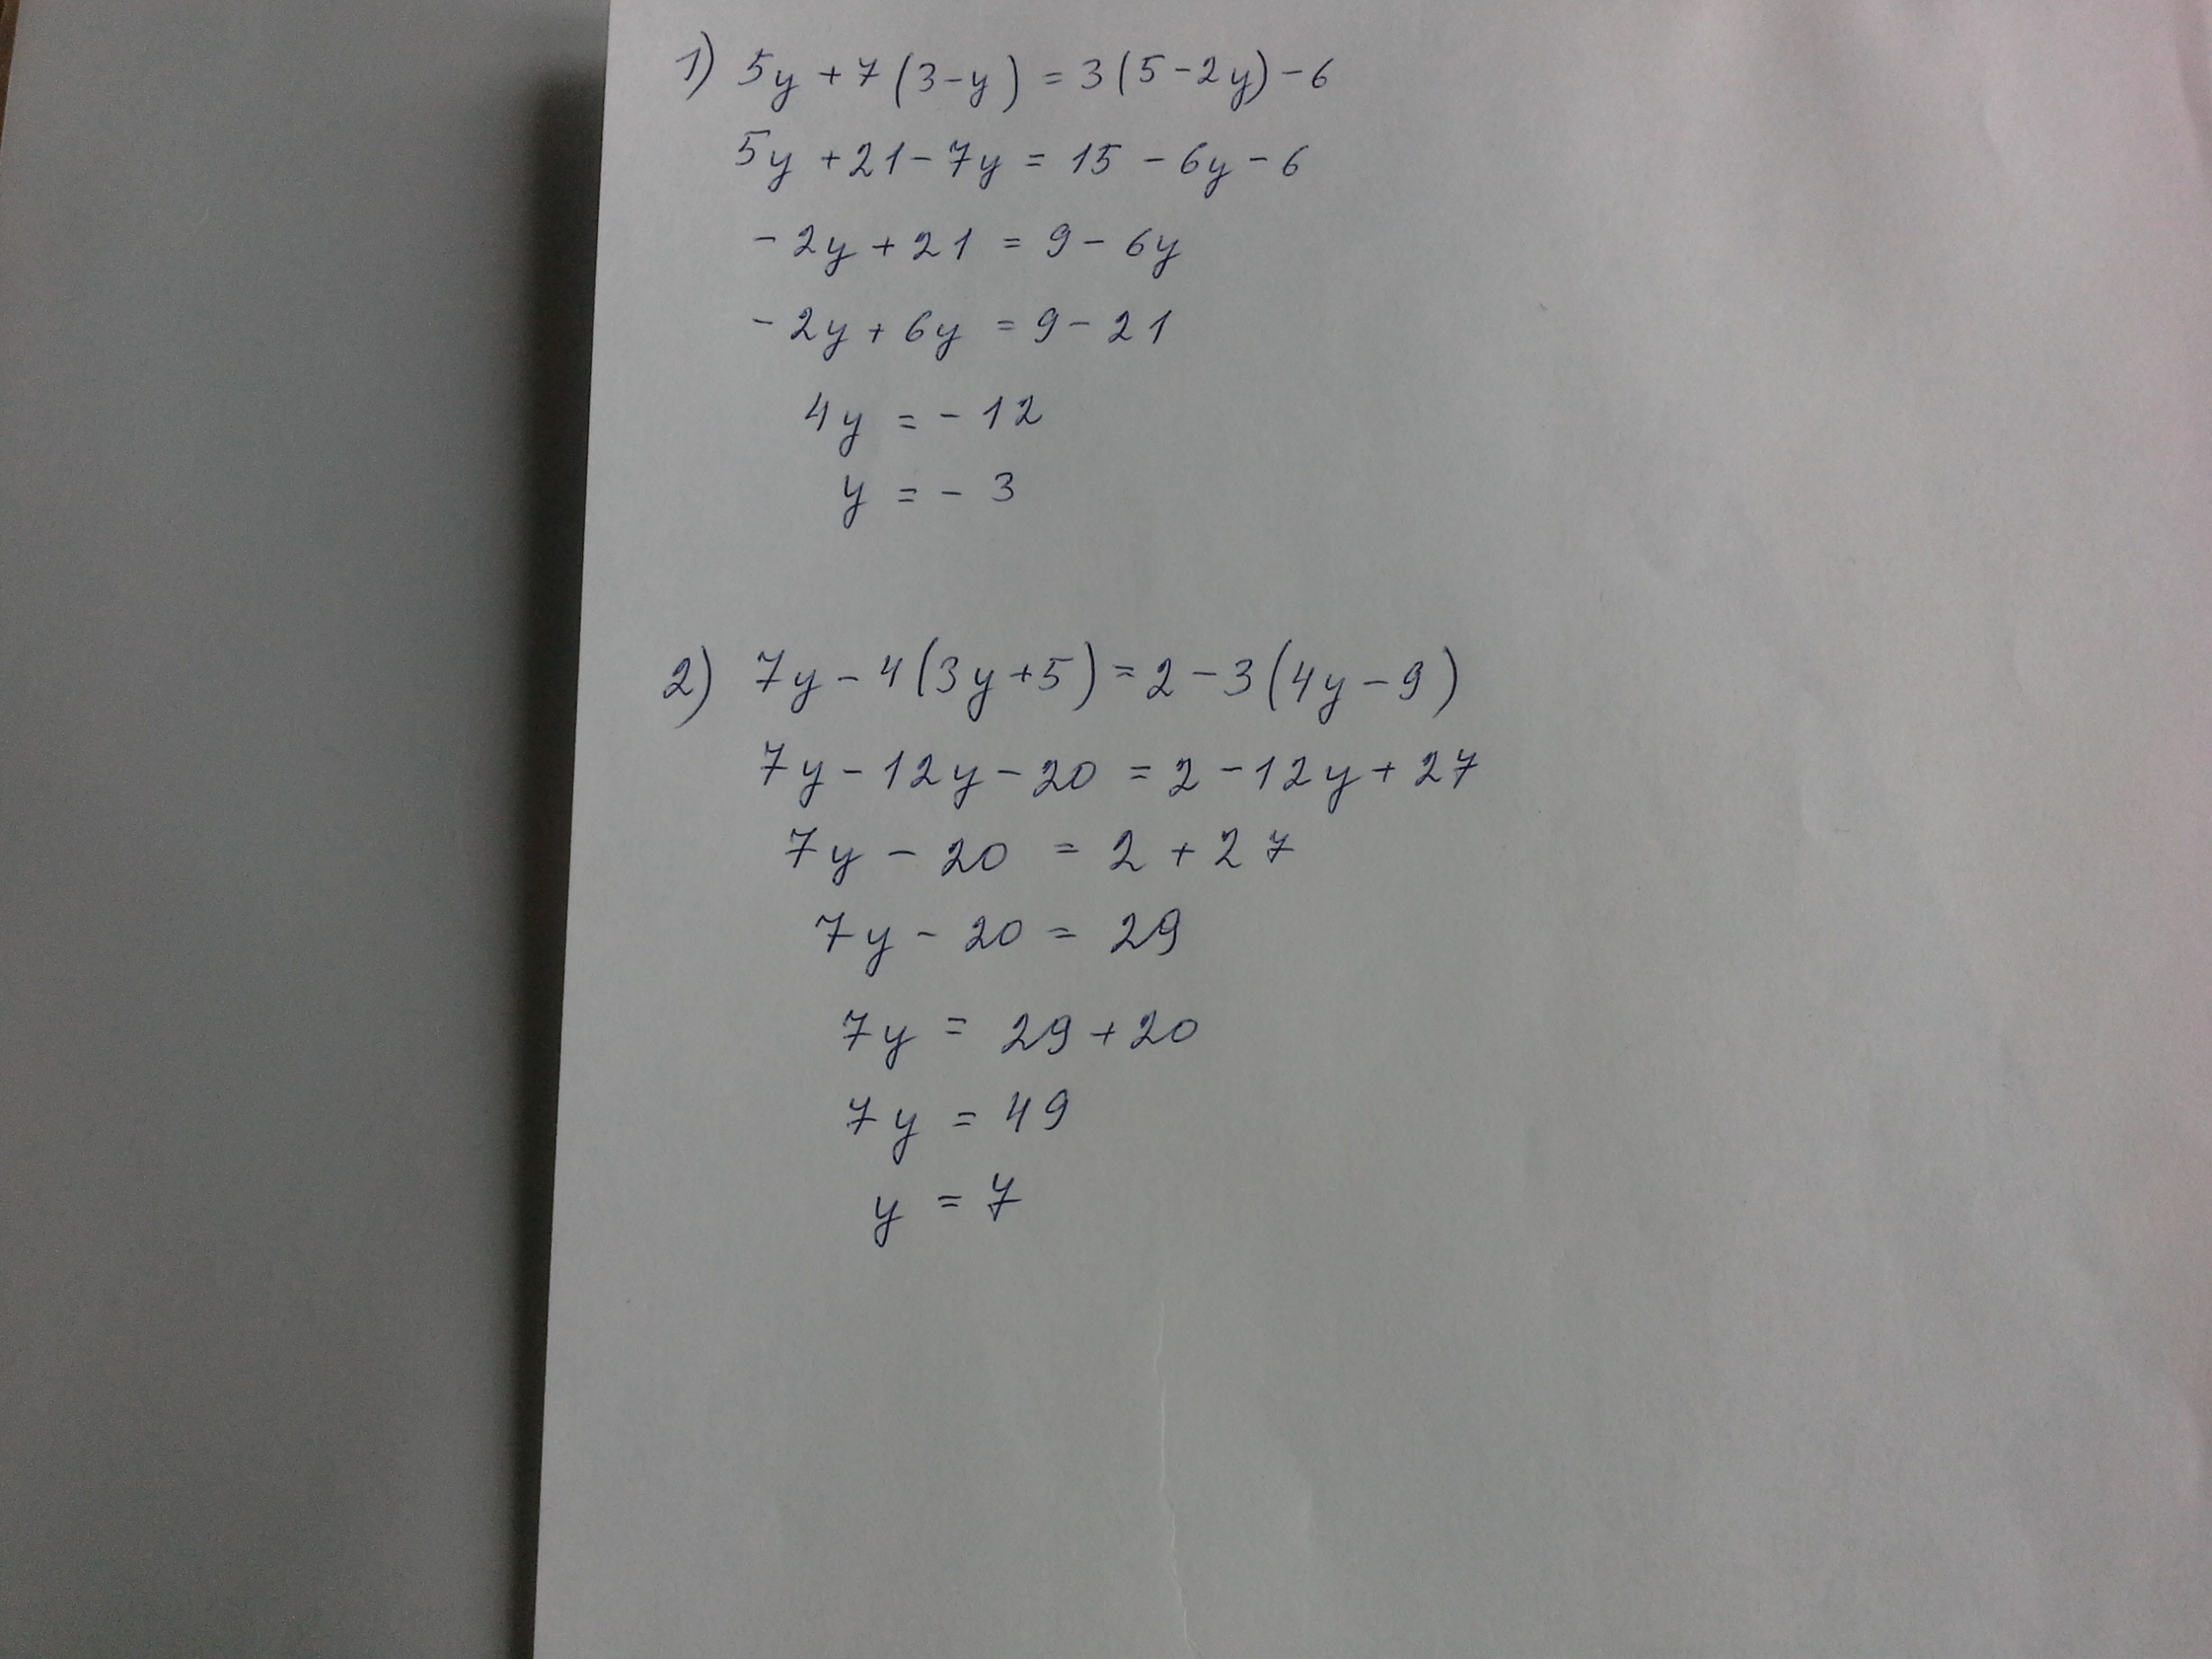 1) 5y + 7(3-y) = 3(5-2y)-6
5y + 21 - 7y = 15 - 6y - 6
- 2y + 21 = 9 - 6y
- 2y + 6y = 9 - 21
4y = - 12
y = - 3
2) 7y - 4(3y+5) = 2 - 3(4y-9)
7y - 12y - 20 = 2 - 12y + 27
7y - 20 = 2 + 27
7y - 20 = 29
7y = 29 + 20
7y = 49
y = 7